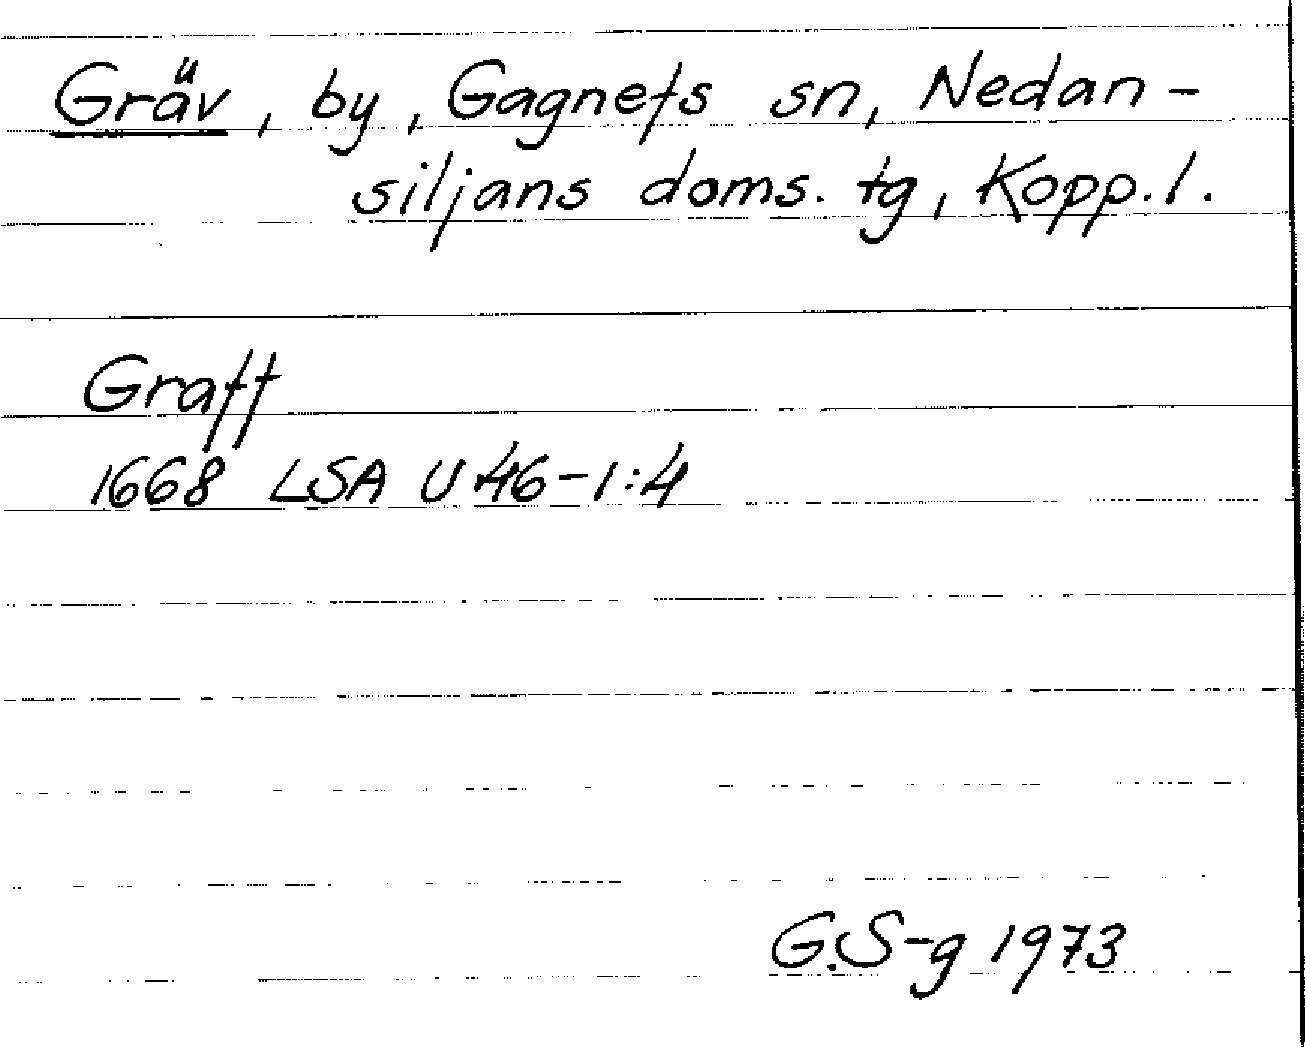 Gräv, by, Gagnefs sn, Nedan-
siljans doms. tg, Kopp. l.
Graff
1668 LSA U 46-1:4
G.S-g 1973